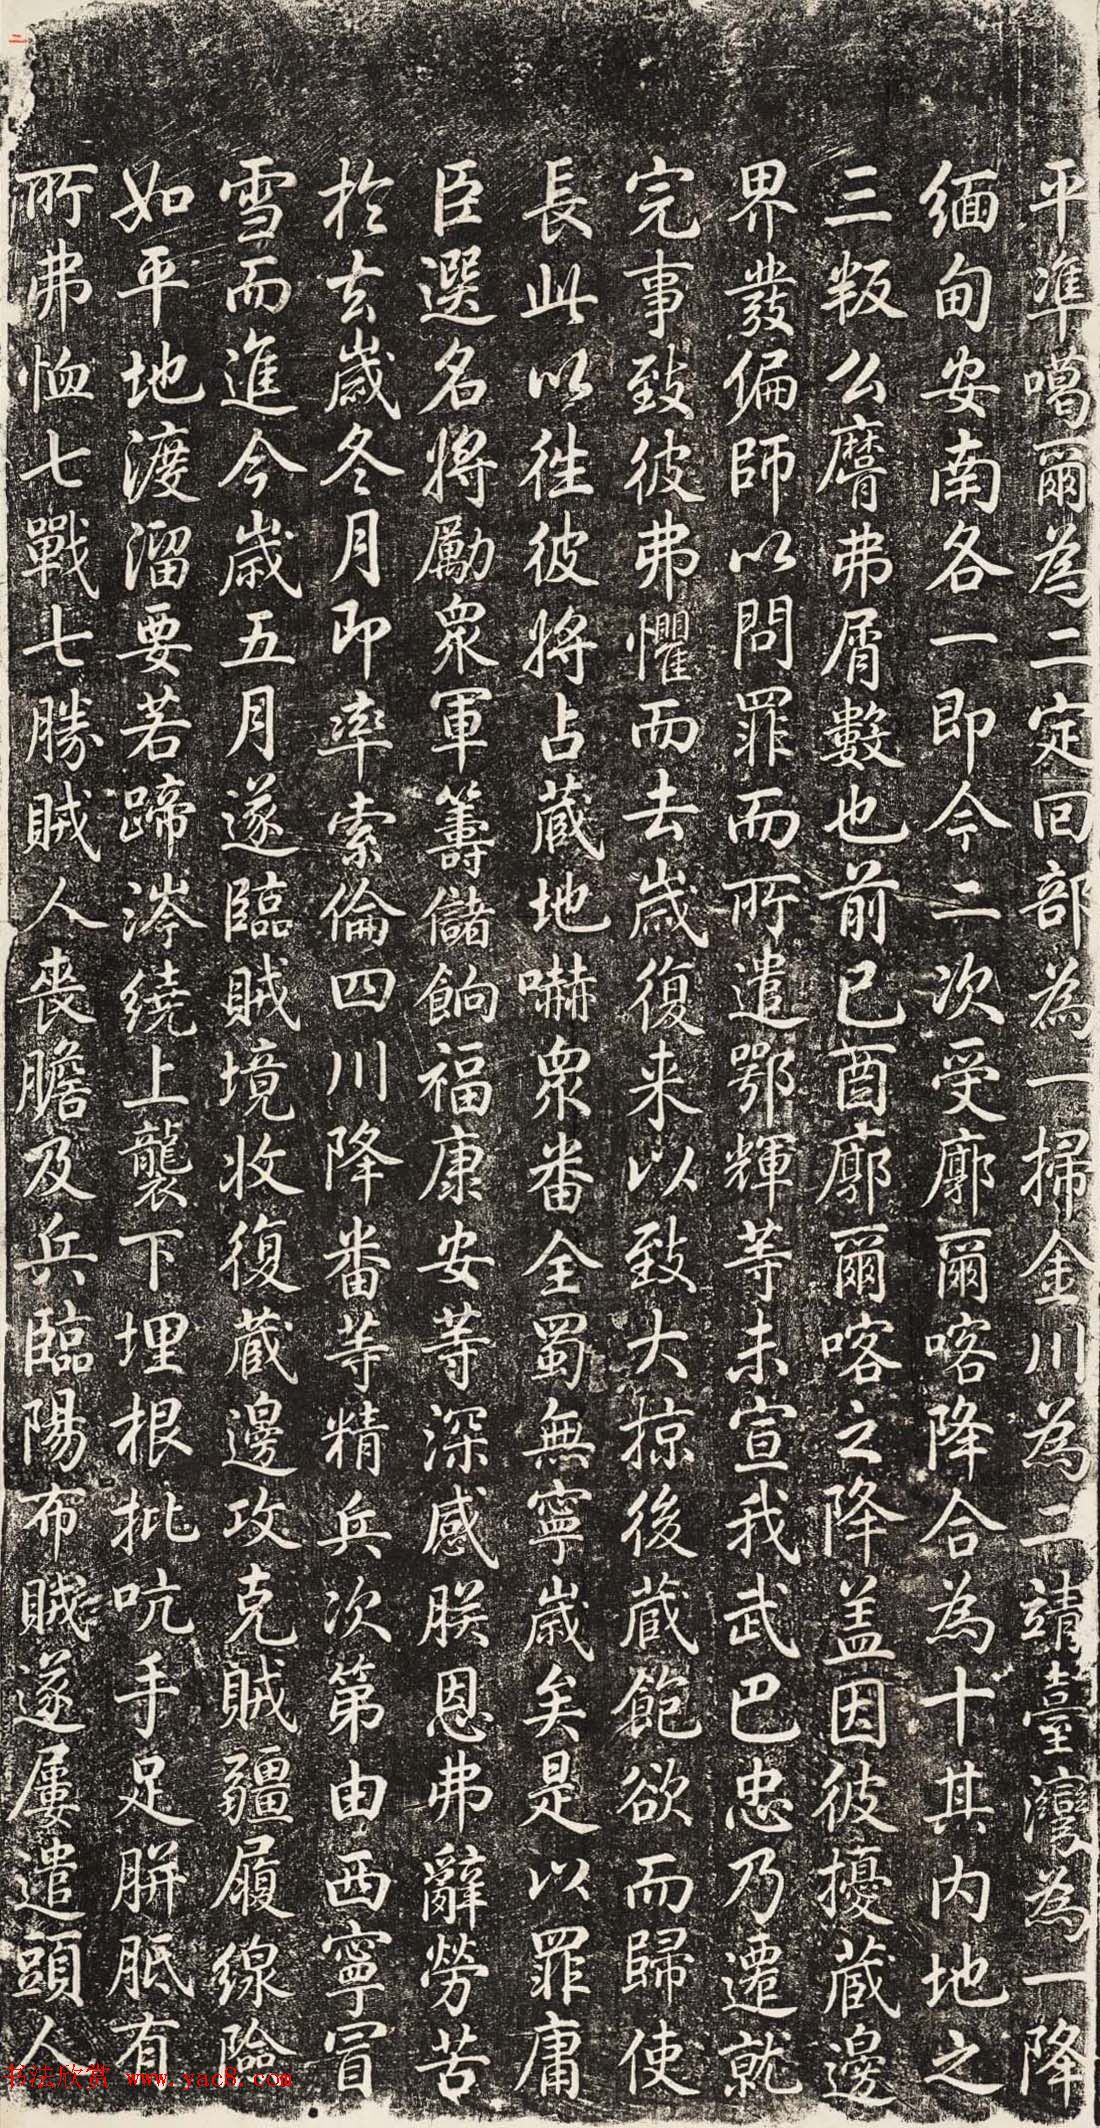 平準噶爾為二定回部為一掃金川為二靖臺灣為一降
緬甸安南各一即今二次受廓爾喀降合為十其內地之
三叛么麿弗屑數也前己酉廓爾喀之降盖因彼擾藏邊
界發偏師以問罪而所遣鄂輝等未宣我武巴忠乃遷就
完事致彼弗懼而去歲復来以致大掠後藏飽欲而歸使
長此以往彼將占藏地嚇眾番全蜀無寧歲矣是以罪庸
臣選名將勵眾軍籌儲餉福康安等深感朕恩弗辭勞苦
於去歲冬月即率索倫四川降番等精兵次第由西寧冒
雪而進今歲五月遂臨賊境收復藏邊攻克賊疆履線險
如平地渡溜要若蹄涔繞上襲下埋根批吭手足胼胝有
所弗恤七戰七勝賊人喪膽及兵臨陽布賊遂屢遣頭人
二
书法欣赏 www.yac8.com